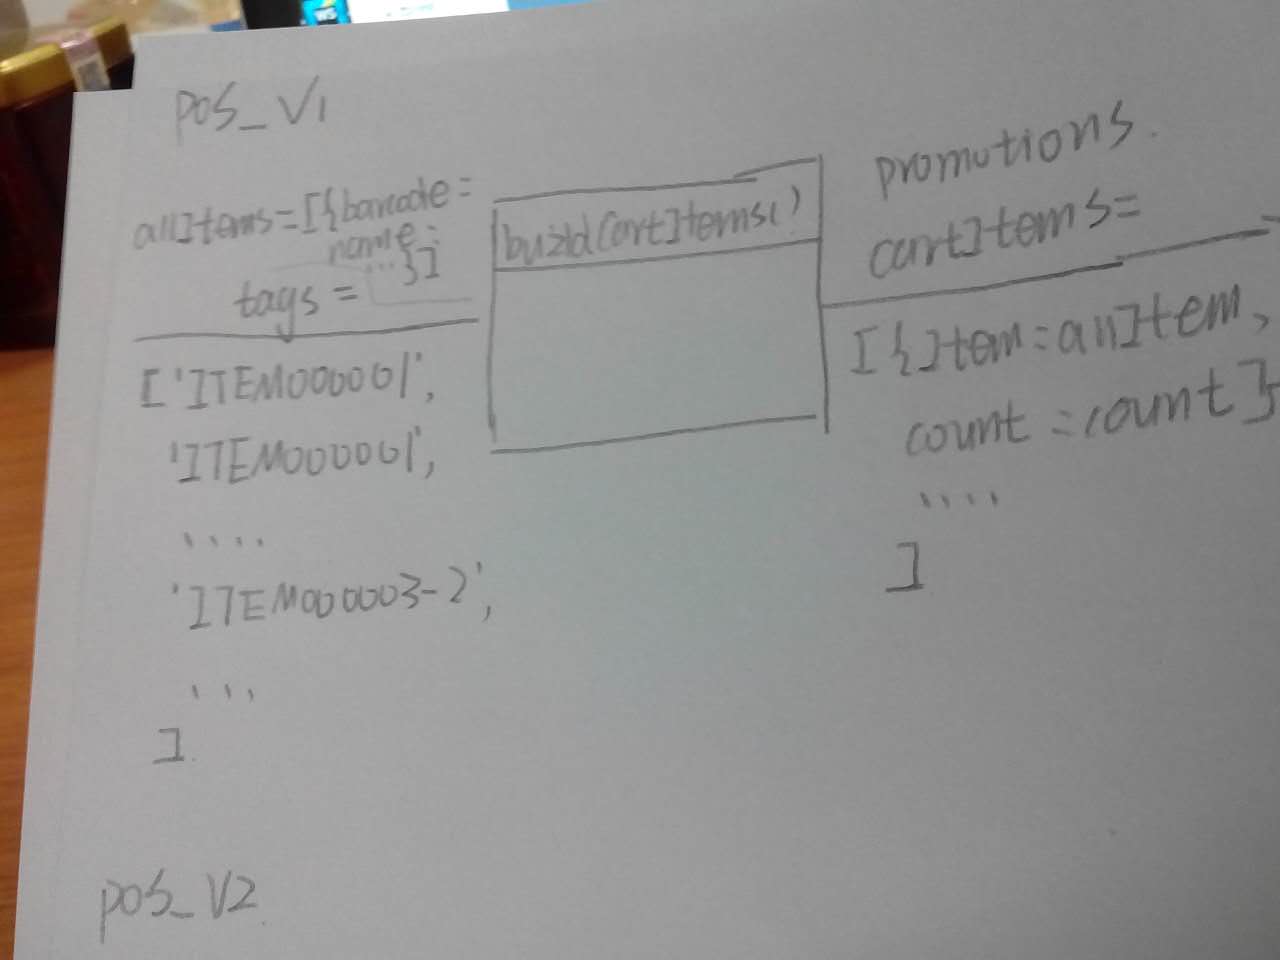 POS_V1
allItems=[{barcode:
name:
...}]
tags=
['ITEM000001',
'ITEM000001',
....
'ITEM000003-2',
...
]
buildCartItems()
promotions.
cartItems=
[{Item:allItem,
count:count}
....
]
POS_V2